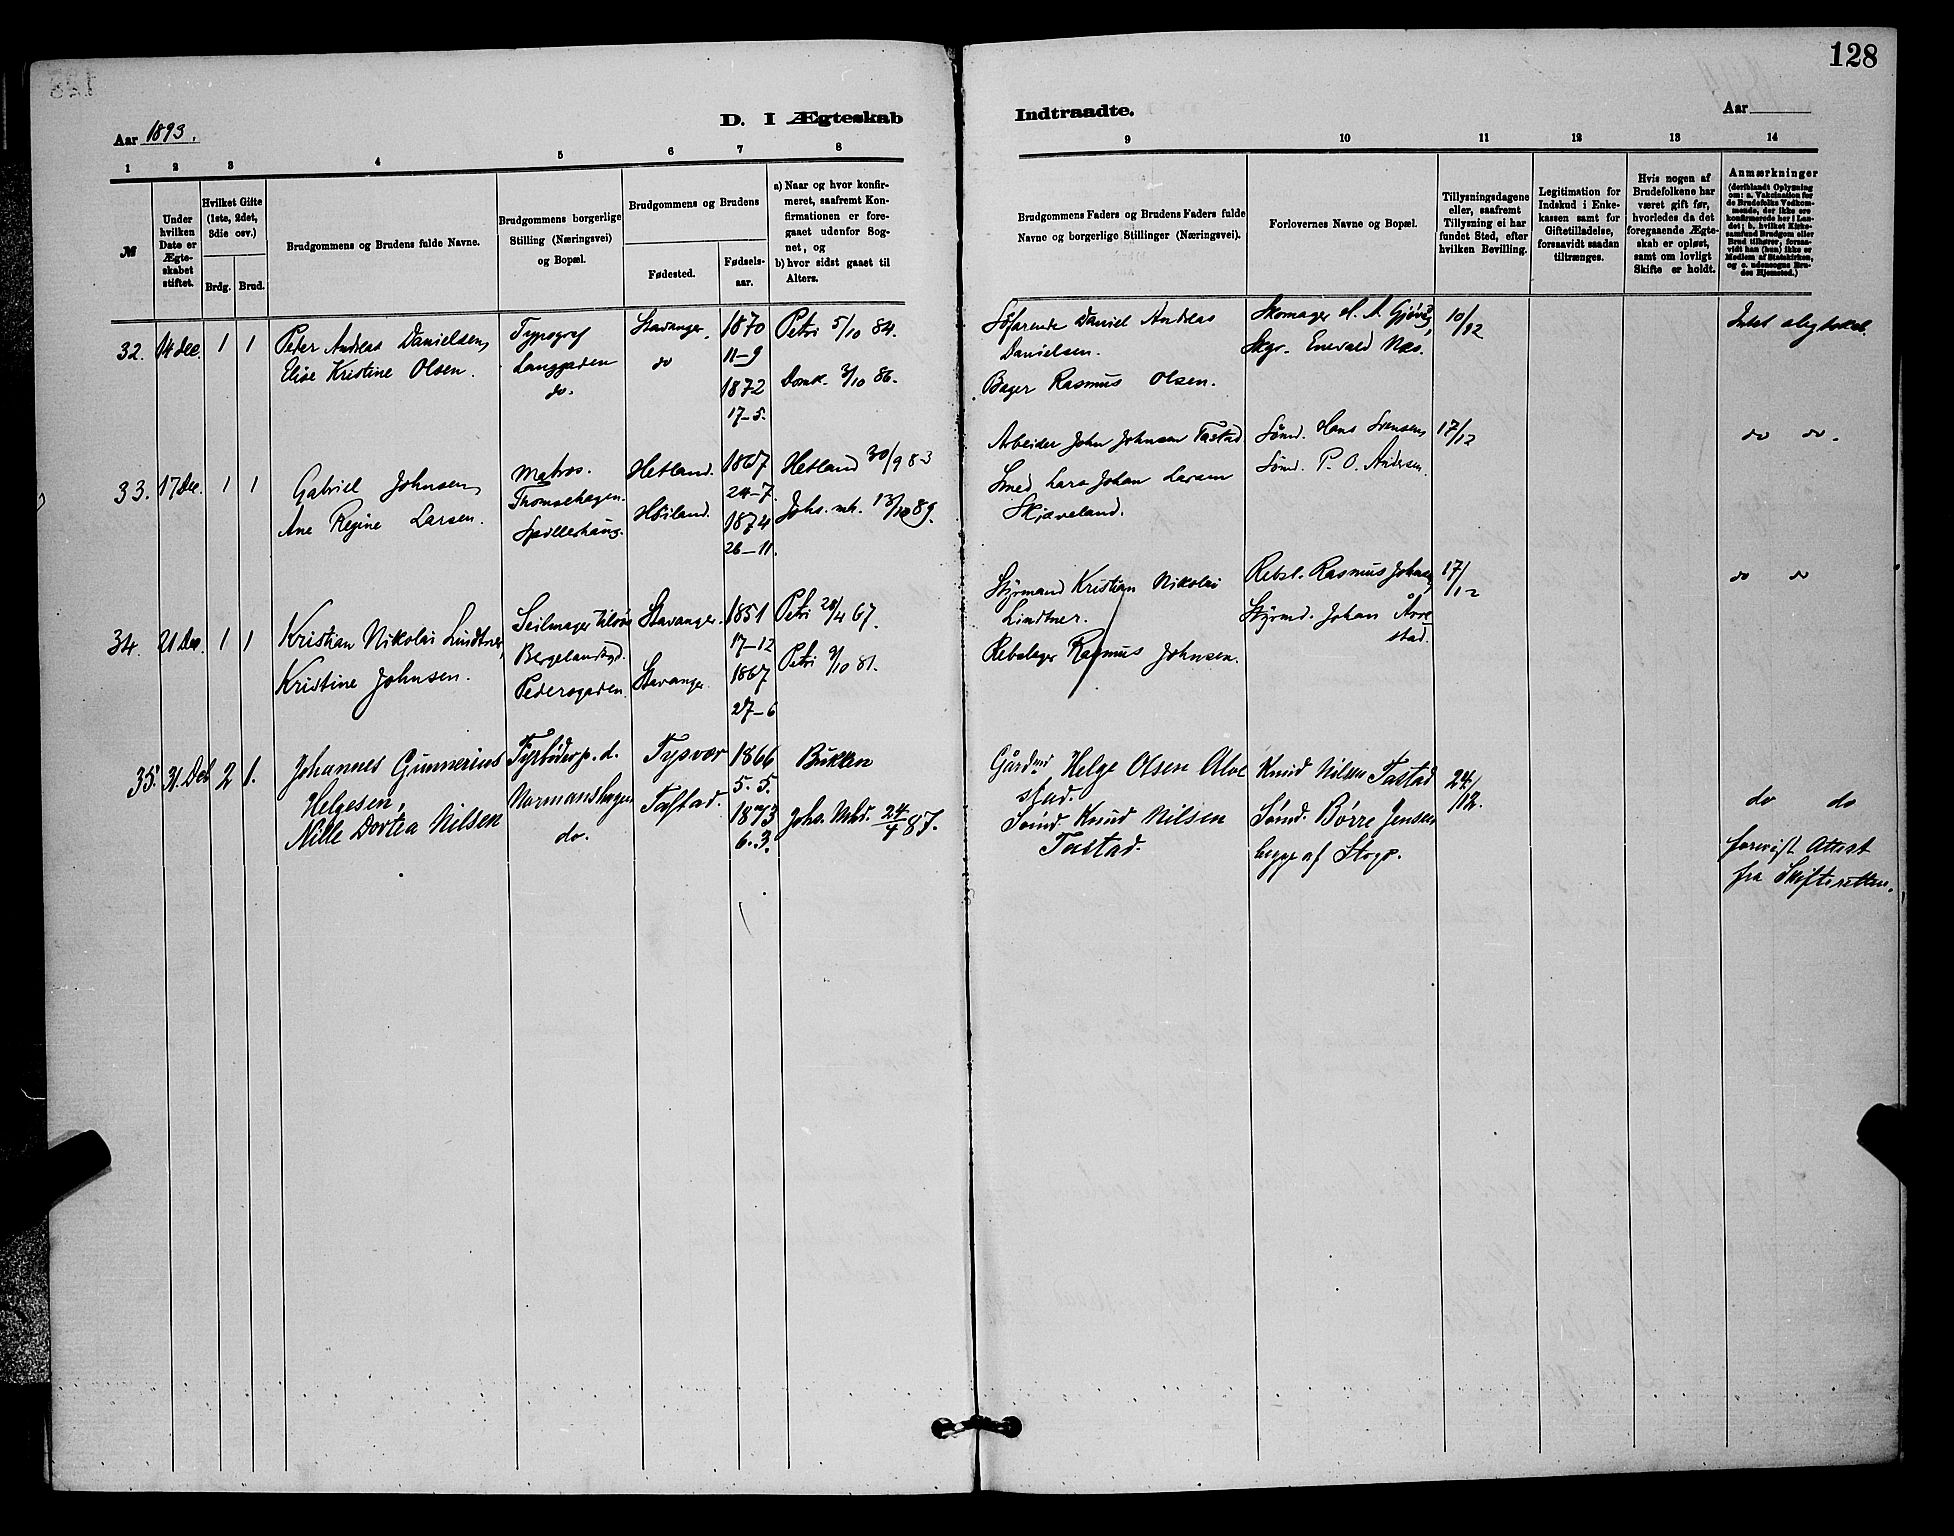 128
Aar 1893.
D. I Ægteskab
Indtraadte.
Aar
1 2 3 4 5 6 7 8 9 10 11 12 13 14
№
Under hvilken Date er Ægteskabet stiftet.
Hvilket Gifte (1ste, 2det, 3die osv.)
Brdg. Brud.
Brudgommens og Brudens fulde Navne.
Brudgommens borgerlige Stilling (Næringsvei) og Bopæl.
Brudgommens og Brudens
Fødested.
Fødselsaar.
a) Naar og hvor konfirmeret, saafremt Konfirmationen er foregaaet udenfor Sognet, og
b) hvor sidst gaaet til Alters.
Brudgommens Faders og Brudens Faders fulde Navne og borgerlige Stillinger (Næringsvei).
Forlovernes Navne og Bopæl.
Tillysningsdagene eller, saafremt Tillysning ei har fundet Sted, efter hvilken Bevilling.
Legitimation for Indskud i Enkekassen samt for Giftetilladelse, forsaavidt saadan tiltrænges.
Hvis nogen af Brudefolkene har været gift før, hvorledes da det foregaaende Ægteskab er opløst, samt om lovligt Skifte er holdt.
Anmærkninger
(deriblandt Oplysning om: a. Vakcination for de Brudefolks Vedkommende, der ikke ere konfirmerede her i Landet; b. hvilket Kirkesamfund Brudgom eller Brud tilhører, forsaavidt han (hun) ikke er Medlem af Statskirken, og c. udensogns Brudes Hjemsted.)
32. 14 Dec. 1 1
Peter Andreas Danielsen,
Elise Kristine Olsen.
Typograf
Langgaden
do.
Stavanger.
do
1870
11–9
1872
17–5.
Petri 5/10 84.
Domk. 3/10 86.
Søfarende Daniel Andreas
Danielsen.
Bager Rasmus Olsen.
Skomager
Enevald Næs.
10/12
Intet slegtskab.
33. 17 Dec. 1 1
Gabriel Johnsen,
Ane Regine Larsen.
Matros.
Thomsehagen.
Spillerhaug.
Hetland.
Høiland.
1867
24–7.
1874
26–11.
Hetland 30/9 83
Johs. mh. 13/10 89.
Arbeider John Johnsen Tastad
Smed Lars Johan Larsen
Skjæveland.
Sømd. Hans Svensen,
Sømd. P. O. Andersen.
17/12
do do.
34. 21 Dec. 1 1
Kristian Nikolai Lindtner,
Kristine Johnsen.
Seilmager tilsøs
Bergelandsgd.
Pedersgaden.
Stavanger.
Stavanger.
1851
17–12
1867
27–6
Petri 28/4 67.
Petri 9/10 81.
Styrmand Kristian Nikolai
Lindtner.
Rebslager Rasmus Johnsen.
Rebsl. Rasmus Johnsen,
Styrmd. Johan Årre
stad.
17/12
do do
35. 31. Det 2 1.
Johannes Gunnerius
Helgesen,
Nille Dortea Nilsen
Fyrbøder p. d.
Normanshagen
do.
Tysvær
Tastad.
1866
5. 5.
1873
6. 3.
Bukken
Johs. Mhd. 24/4 87.
Gårdmd Helge Olsen Alve
stad.
Sømd. Knud Nilsen
Tastad.
Knud Nilsen Tastad
Sømd. Børre Jensen
begge af Stvgr.
24/12.
do do
forevist Attest
fra Skifteretten.